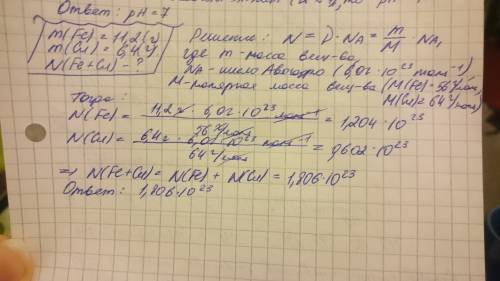 Ответ: pH = 7
m(Fe) = 11,2 (г)
m(Cu) = 6,4 (г)
N(Fe+Cu) - ?
Решение: N = ν · NA = m/M · NA,
где m - масса вещ-ва
NA - число Авогадро (6,02 · 10²³ моль⁻¹)
M - молярная масса вещ-ва (M(Fe) = 56 г/моль,
M(Cu) = 64 г/моль)
Тогда:
N(Fe) = 11,2 г · 6,02 · 10²³ моль⁻¹ / 56 г/моль = 1,204 · 10²³
N(Cu) = 6,4 г · 6,02 · 10²³ моль⁻¹ / 64 г/моль = 0,602 · 10²³
⇒ N(Fe+Cu) = N(Fe) + N(Cu) = 1,806 · 10²³
Ответ: 1,806 · 10²³